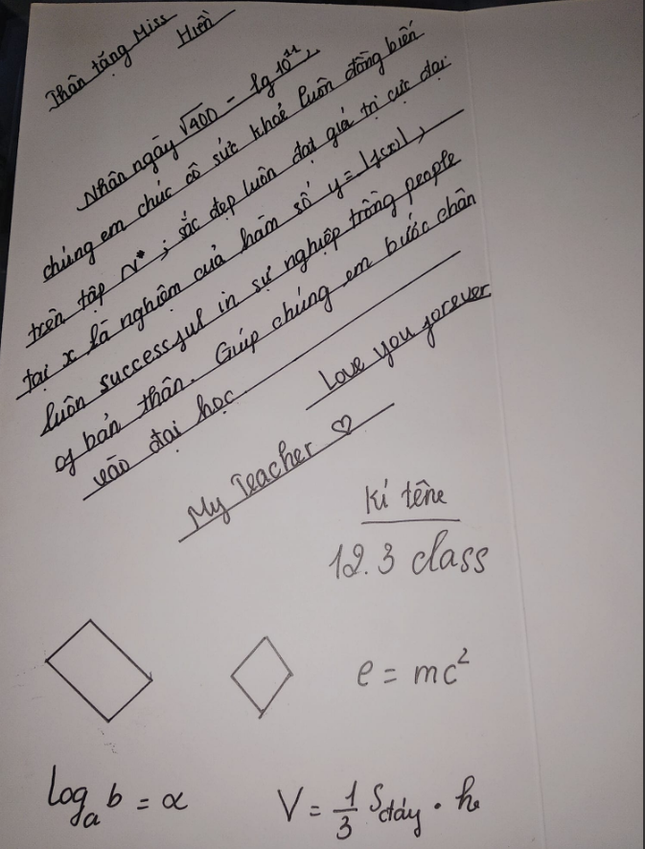 Thân tặng Miss
Hiền
Nhân ngày √400 - lg 10¹¹,
chúng em chúc cô sức khoẻ luôn đồng biến
trên tập N*; sắc đẹp luôn đạt giá trị cực đại
tại x là nghiệm của hàm số y=|f(x)|,
luôn successful in sự nghiệp trồng people
of bản thân. Giúp chúng em bước chân
vào đại học
Love you forever
My Teacher ♡
Kí têne
12.3 class
e = mc²
logₐb = α
V = 1/3 Sđáy . h